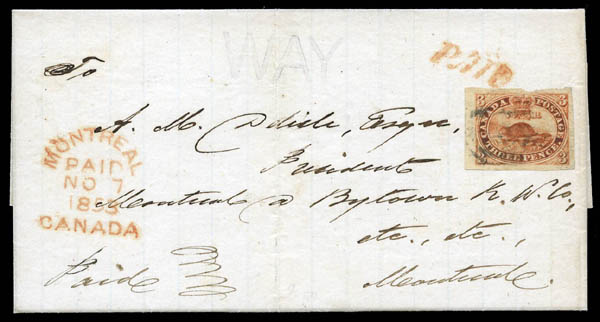 WAY
PAID
To
3 CANADA POSTAGE 3
3 THREE PENCE 3
A. M. Delisle, Esqre,
President
Montreal & Bytown R. W. Co.,
etc., etc.,
Montreal.
MONTREAL
PAID
NO 7
1853
CANADA
Paid